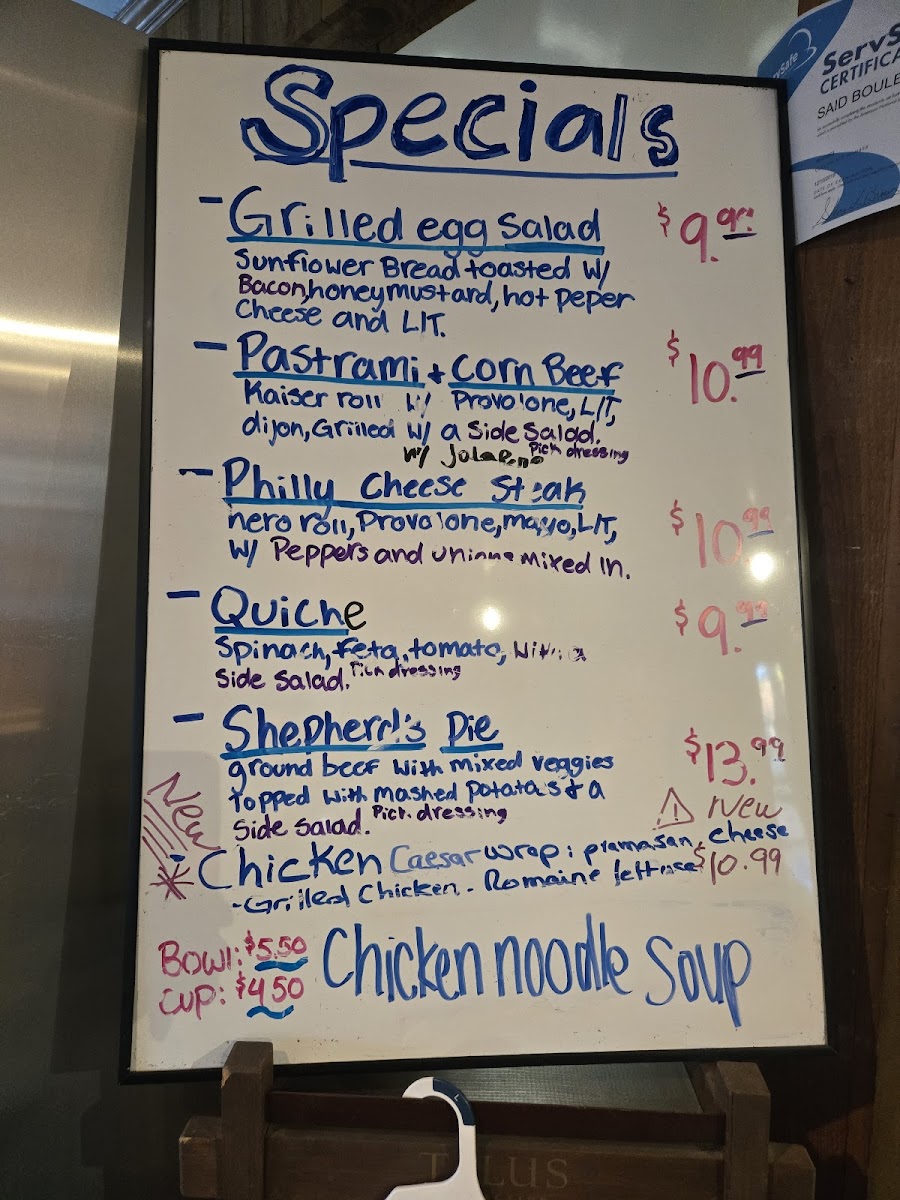 Specials
- Grilled egg Salad $9.99
Sunflower Bread toasted w/
Bacon, honey mustard, hot peper
Cheese and L/T.
- Pastrami + Corn Beef $10.99
Kaiser roll w/ Provolone, L/T,
dijon, Grilled w/ a Side Salad.
Pick dressing
w/ Jolapeno
- Philly Cheese Steak
hero roll, Provolone, mayo, L/T, $10.99
w/ Peppers and unions mixed in.
- Quiche $9.99
Spinach, feta, tomato, with a
Side Salad. Pick dressing
- Shepherd's Pie $13.99
ground beef with mixed veggies
topped with mashed potata's & a
Side Salad. Pick dressing
New
New
Chicken Caesar wrap: pramasan cheese
- Grilled Chicken - Romaine lettuse $10.99
Bowl: $5.50
Cup: $4.50
Chicken noodle Soup
ServS
CERTIFICA
SAID BOULE
rvSafe
L